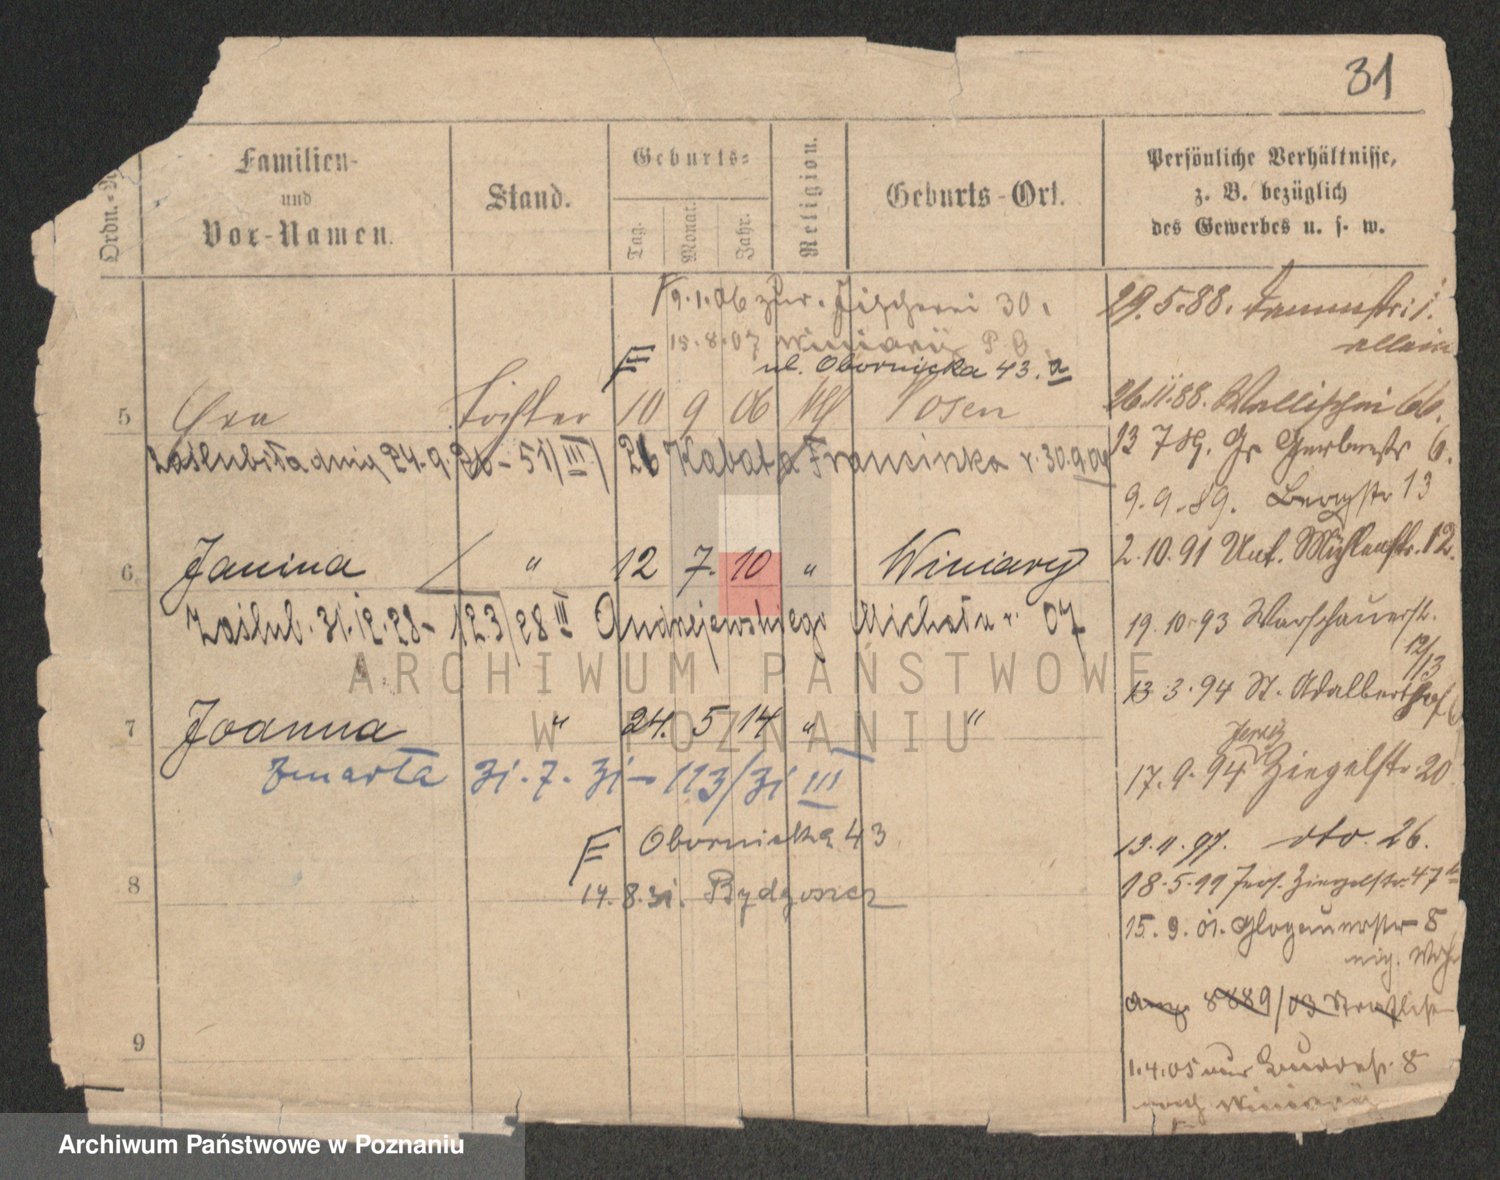 31
Ordn.-N
Familien-
und
Vor-Namen.
Stand.
Geburts=
Tag.
Monat.
Jahr.
Religion.
Geburts-Ort.
Persönliche Verhältnisse,
z. B. bezüglich
des Gewerbes u. s. w.
9.1.06 zur. Fischerei 30.
15.8.07 Winiary P.O
ul. Obornicka 43.a
5 Tochter 10 9 06 Posen
24.9.26 - 51/III/26 Kabata Franciszka r. 30.9.04
6. Janina " 12 7. 10 " Winiary
Zaślub. 31.12.28 - 123/28 III Andrzejewskiego Michała r. 07
7 Joanna " 24. 5 14 " "
zmarła 31.7.31 - 113/31 III
Obornicka 43
8 14.8.31. Bydgoszcz
9
29.5.88. Dammstr: 1.
allein
26.11.88. Wallischei 66.
13 7 89. Gr Gerberstr 6.
9.9.89. Bergstr 13
2.10.91 Unt. Mühlenstr. 12.
19.10.93 Warschauerst.
12/13
13.3.94 St. Adalberthof
Jersitz
17.9.94 Ziegelstr 20
13.11.97. dto. 26.
18.5.99 Jers. Ziegelstr. 47
15.9.01. Glogauerstr 8
8889/03
1.4.05 8
nach Winiary
ARCHIWUM PAŃSTWOWE
W POZNANIU
Archiwum Państwowe w Poznaniu